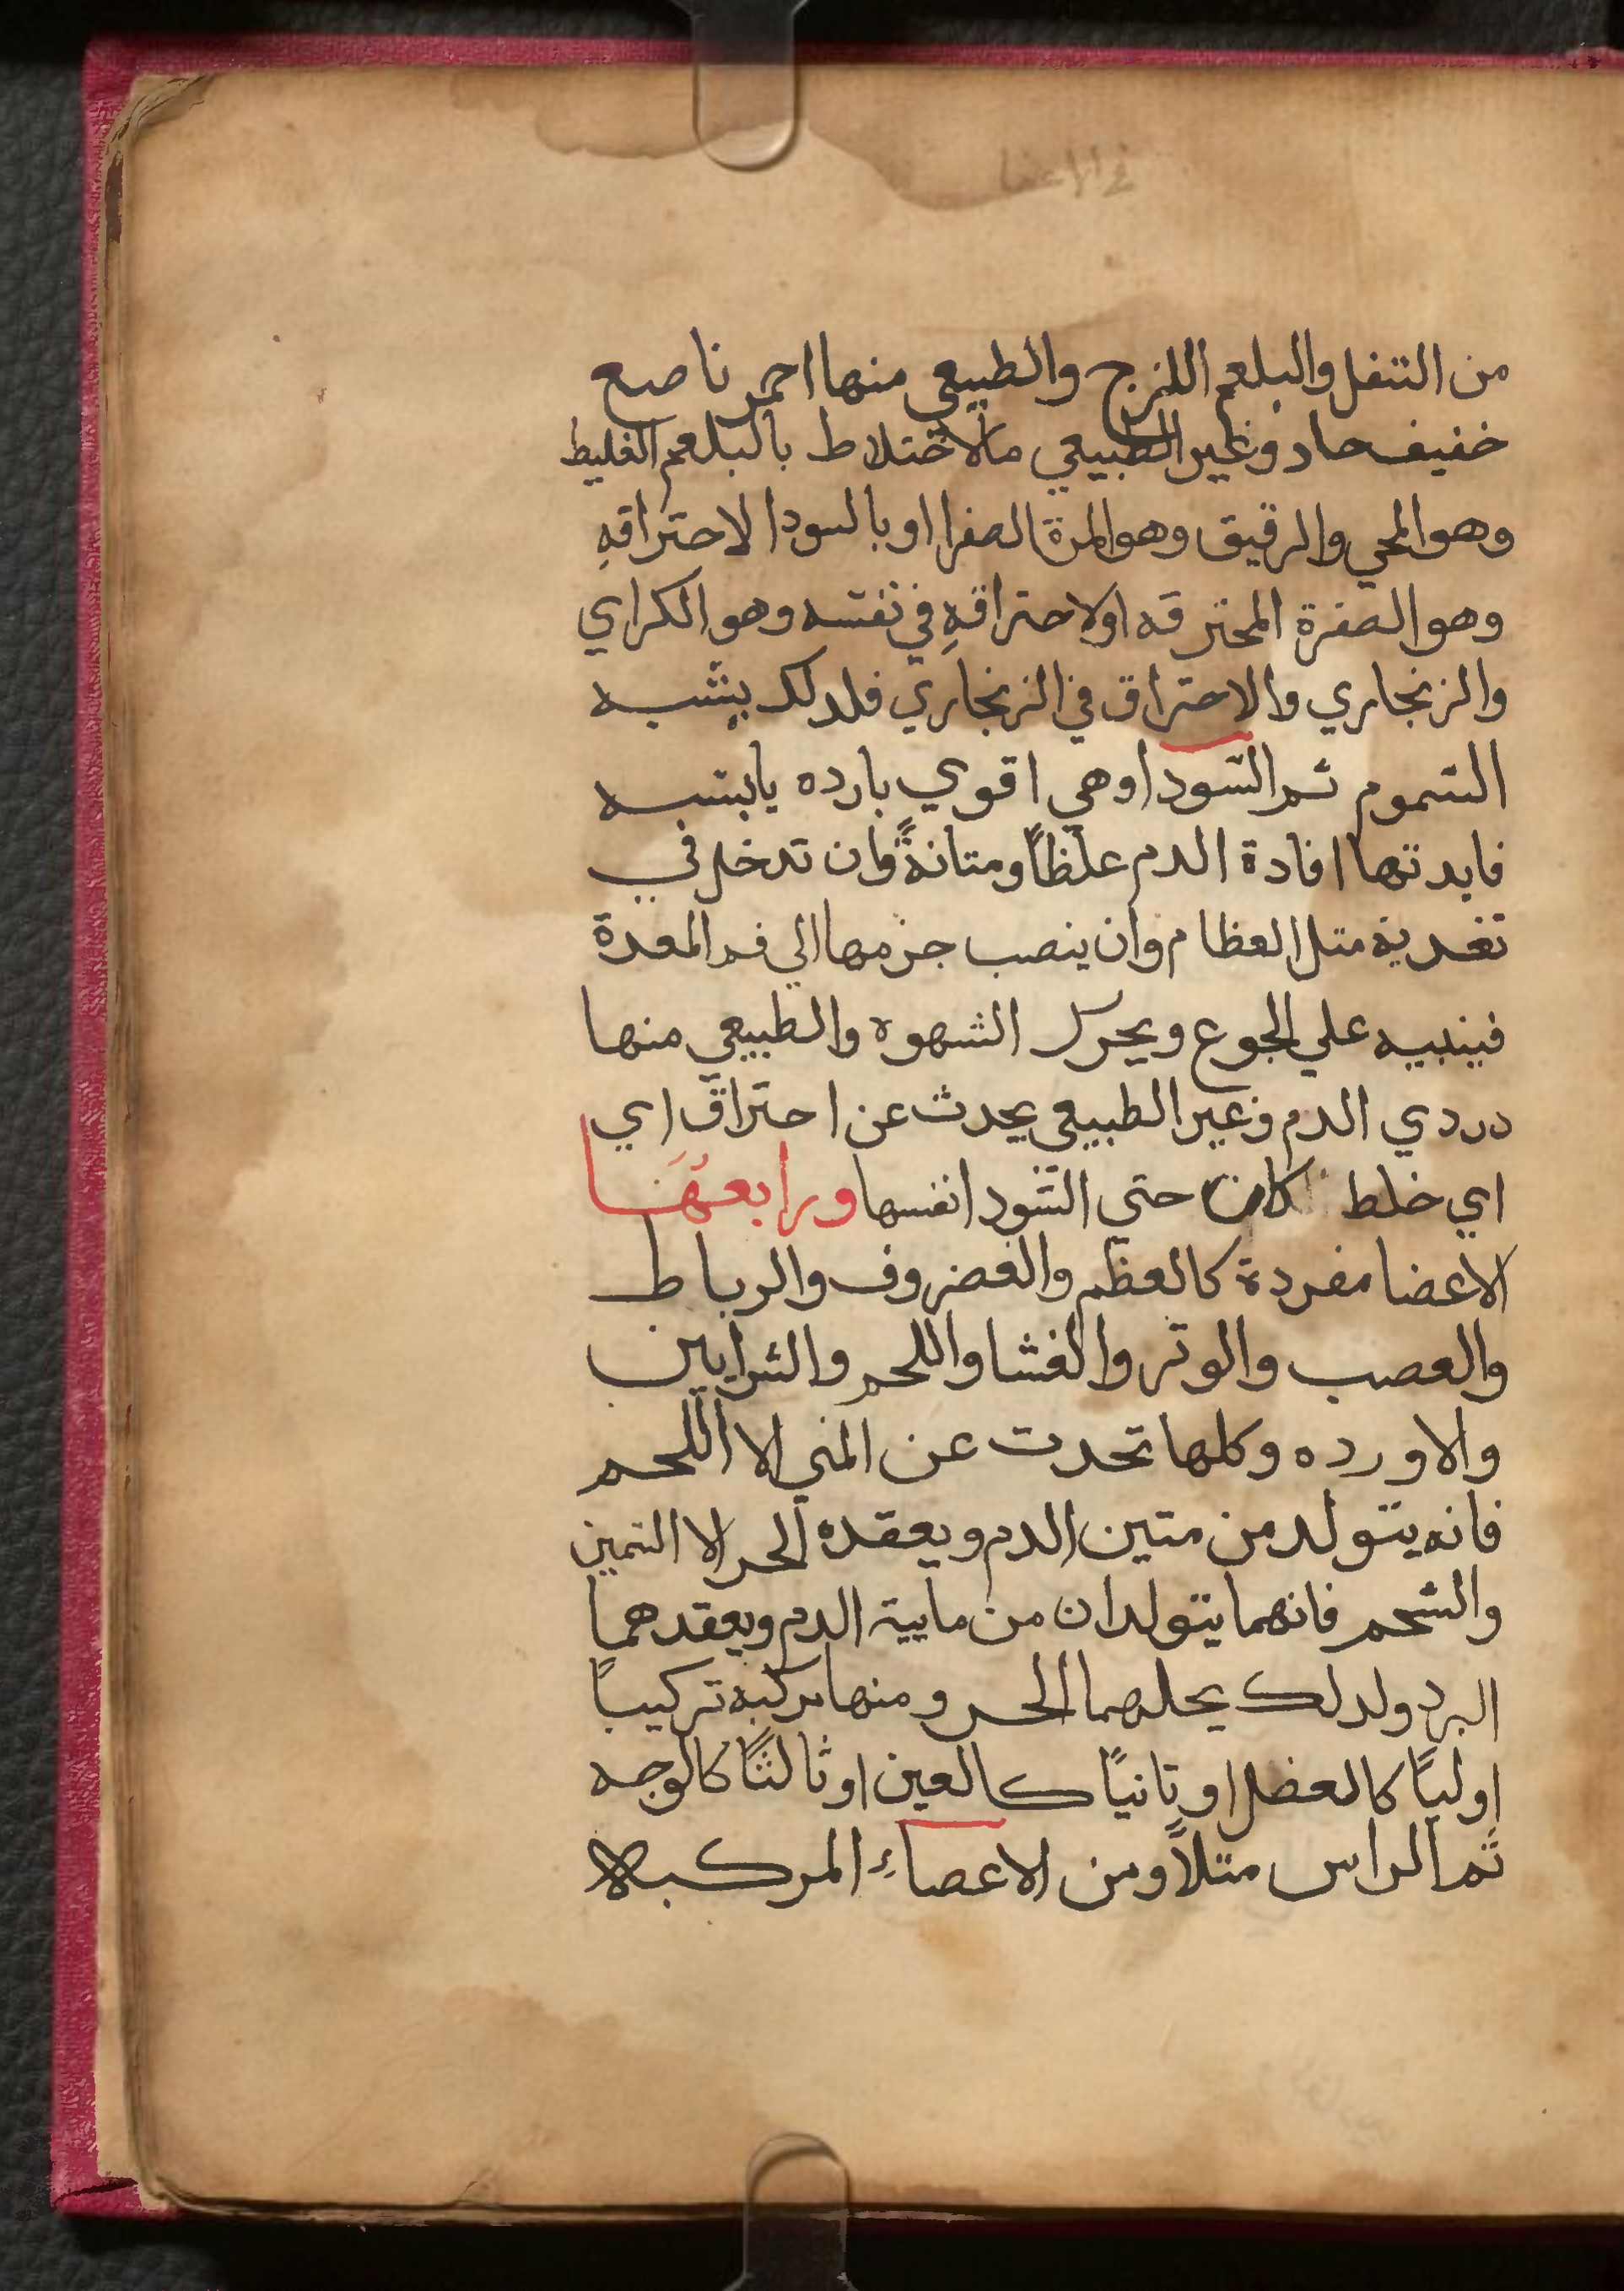 في الاعضا
من التفل والبلغم اللزج والطبيعي منها احمر ناصع
خفيف حاد وغير الطبيعي مالاختلاط بالبلغم الغليط
وهو المحي والرقيق وهو المرة الصفرا او بالسودا لاحتراقهِ
وهو الصفرة المحترقه او لاحتراقهِ في نفسه وهو الكراي
والزنجاري والاحتراق في الزنجاري فلدلك يشبه
السموم ثم السودا وهي اقوي بارده يابسه
فايدتها افادة الدم علظاً ومتانةً وان تدخل في
تغدية متل العظام وان ينصب جزمها الي فم المعدة
فينبيه علي الجوع ويحرك الشهوه والطبيعي منها
دردي الدم وغير الطبيعي يحدث عن احتراق اي
اي خلط كان حتي السودا نفسها ورابعهَا
الاعضا مفردة كالعظم والغضروف والرباط
والعصب والوتر والغشا واللحم والشرايين
والاورده وكلها تحدت عن المني الا اللحم
فانه يتولد من متين الدم ويعقده الحر الا السمين
والشحم فانهما يتولدان من مايية الدم ويعقدهما
البرد ولدلك يحلهما الحر ومنها مركبة تركيباً
اولياً كالعضل او تانياً كالعين او ثالثاً كالوجه
ثم الراس متلاً ومن الاعصاء المركبة